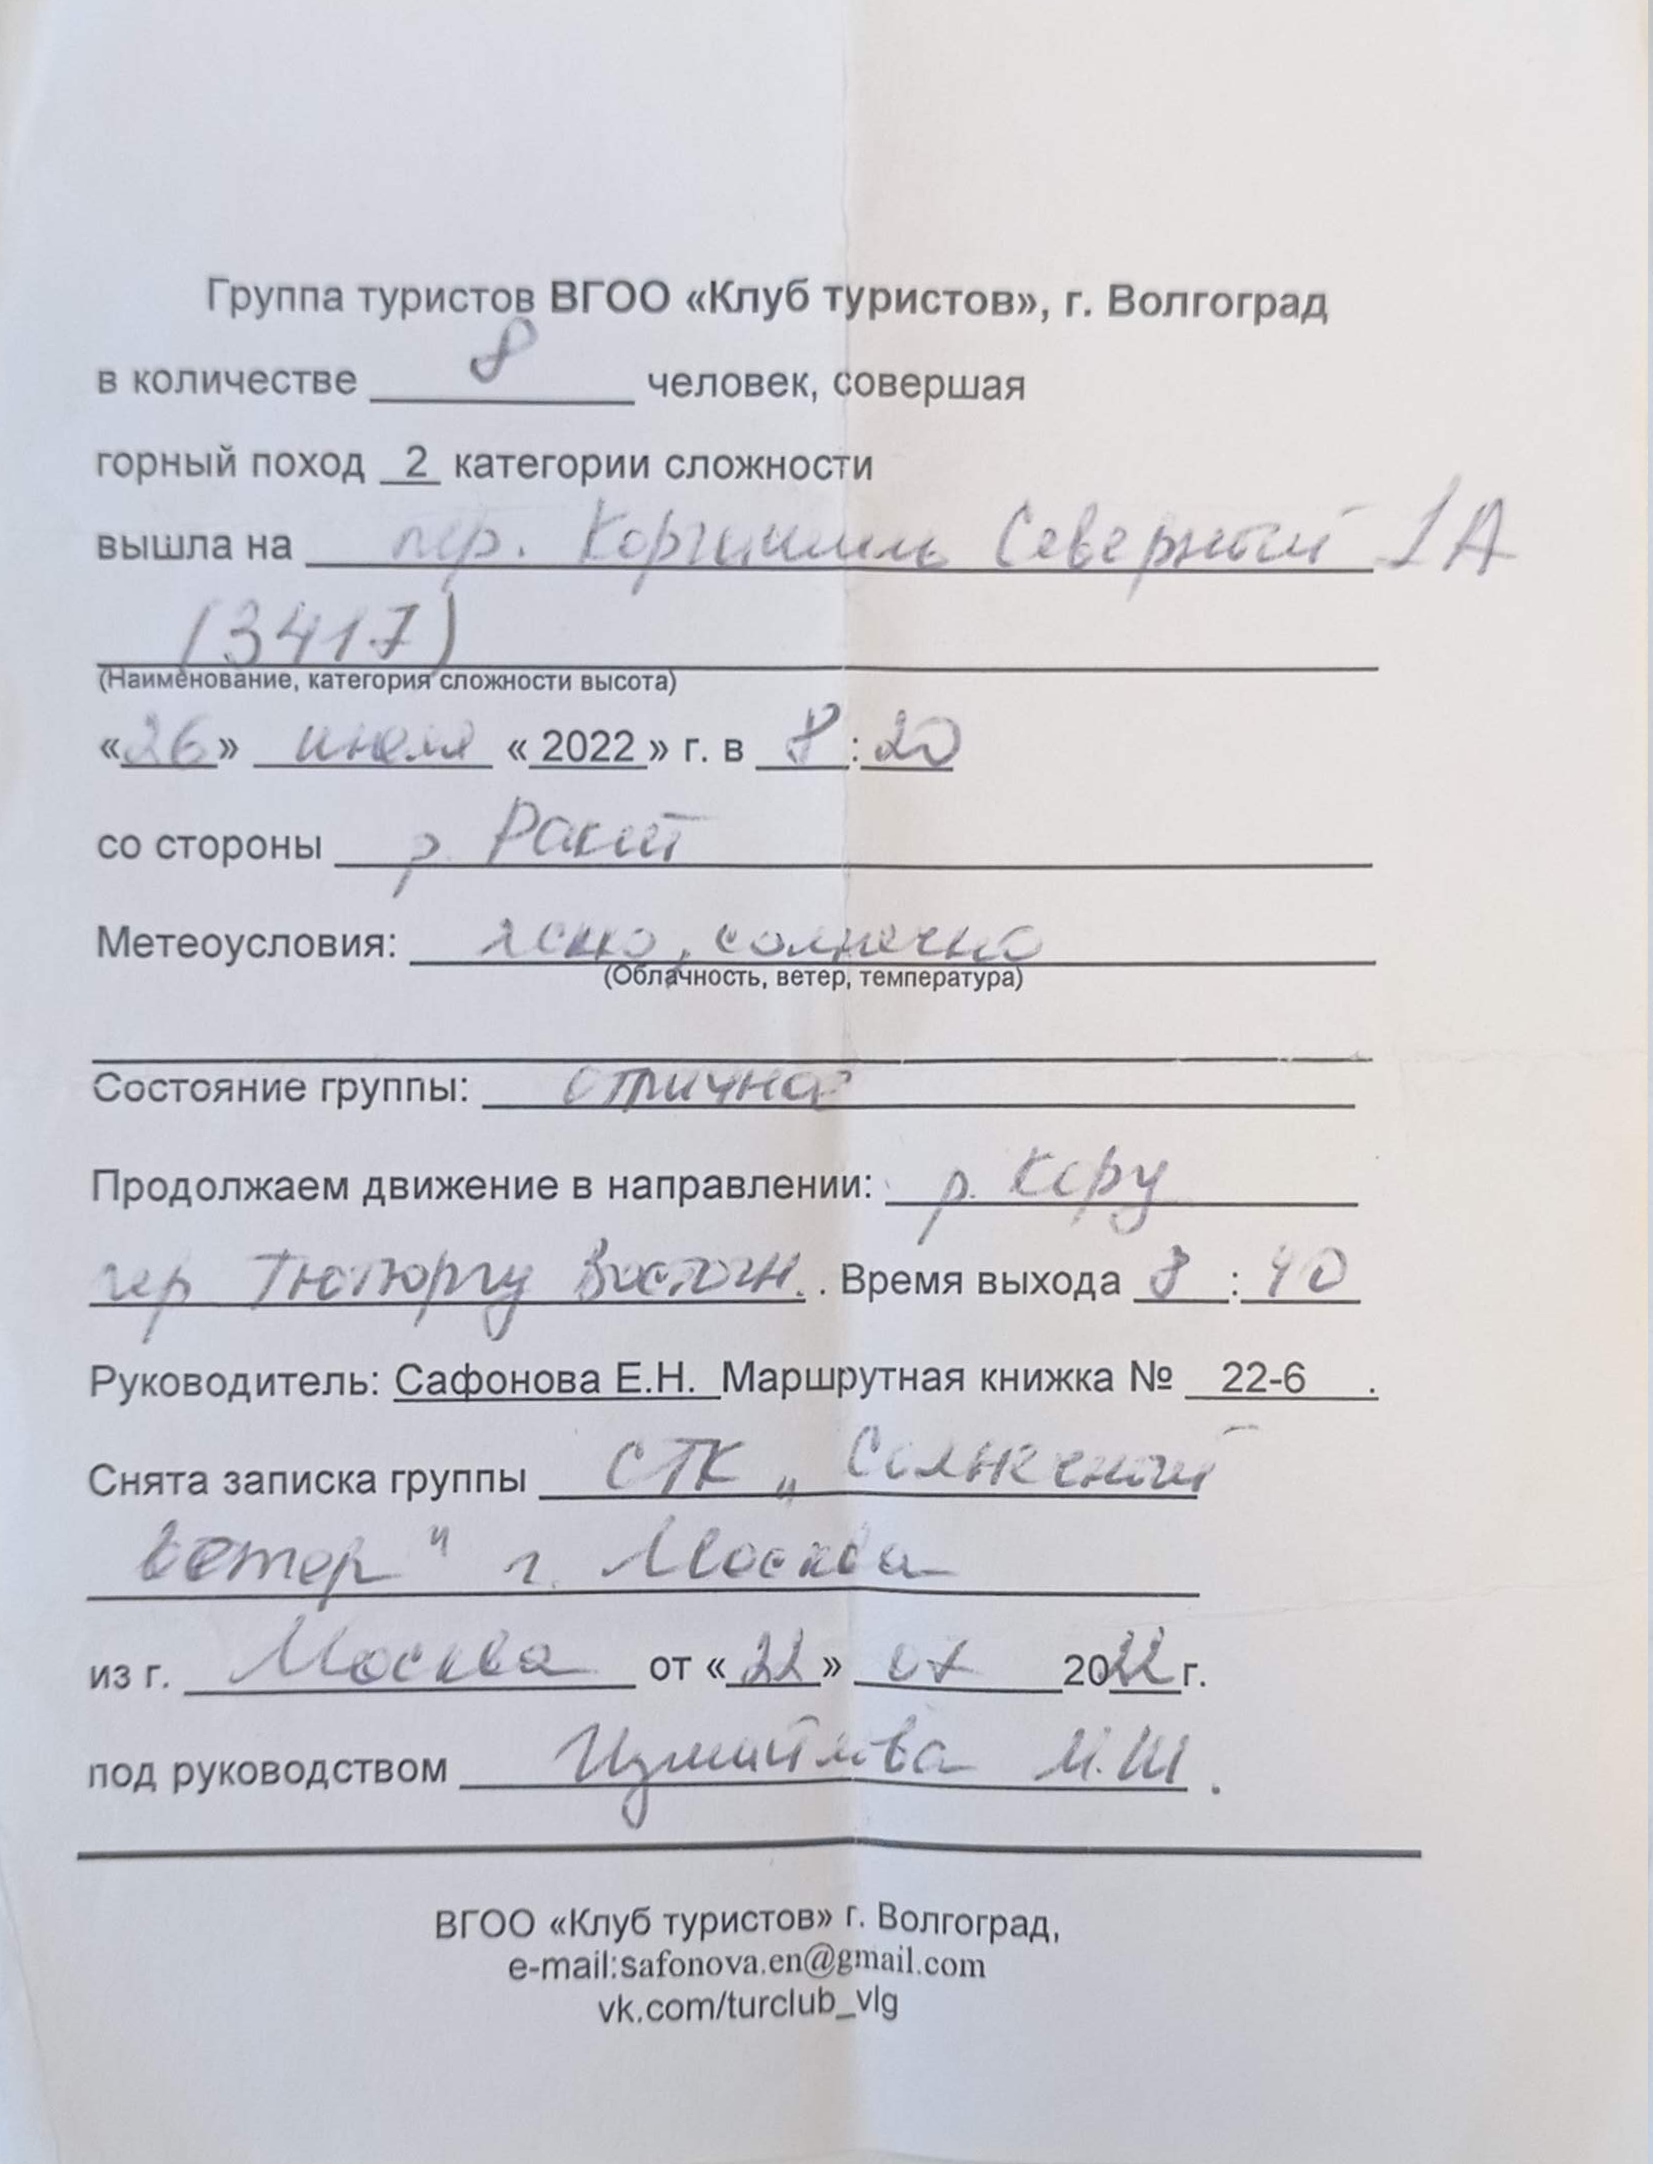 Группа туристов ВГОО «Клуб туристов», г. Волгоград
в количестве 8 человек, совершая
горный поход 2 категории сложности
вышла на пер. Северный 1А
(3417)
(Наименование, категория сложности высота)
«26» июля «2022» г. в 8:20
со стороны р. Ракит
Метеоусловия: ясно, солнечно
(Облачность, ветер, температура)
Состояние группы: отличное
Продолжаем движение в направлении: р. Кору
пер Тютюргу Восточн. . Время выхода 8:40
Руководитель: Сафонова Е.Н. Маршрутная книжка № 22-6 .
Снята записка группы СТК „Солнечный
ветер" г. Москва
из г. Москва от «22» 07 2022 г.
под руководством Измайлова М.Ш.
ВГОО «Клуб туристов» г. Волгоград,
e-mail:safonova.en@gmail.com
vk.com/turclub_vlg